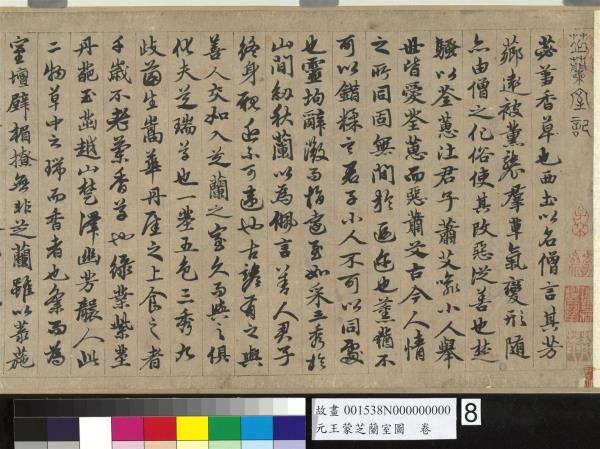 芝蘭室記
苾蒭香草也西土以名僧言其芳
薌遠被薰襲羣草氣變形隨
亦由僧之化俗使其改惡從善也楚
騷以荃蕙注君子蕭艾喻小人舉
世皆愛荃蕙而惡蕭艾古今人情
之所同固無間於遐迩也薰蕕不
可以錯糅言君子小人不可以同處
也靈均辭激而指寔至如采三秀於
山間紉秋蘭以為佩言善人君子
終身服近不可遠也古語有之與
善人交如入芝蘭之室久而與之俱
化夫芝瑞草也一莖五色三秀九
歧菌生嵩華丹厓之上食之者
千歲不老蘭香草也綠葉紫莖
丹葩玉茁越山楚澤幽芳襲人此
二物草中之瑞而香者也為
室壇壁楣橑無非芝蘭雖以施
故畫 001538N000000000
元王蒙芝蘭室圖 卷
8